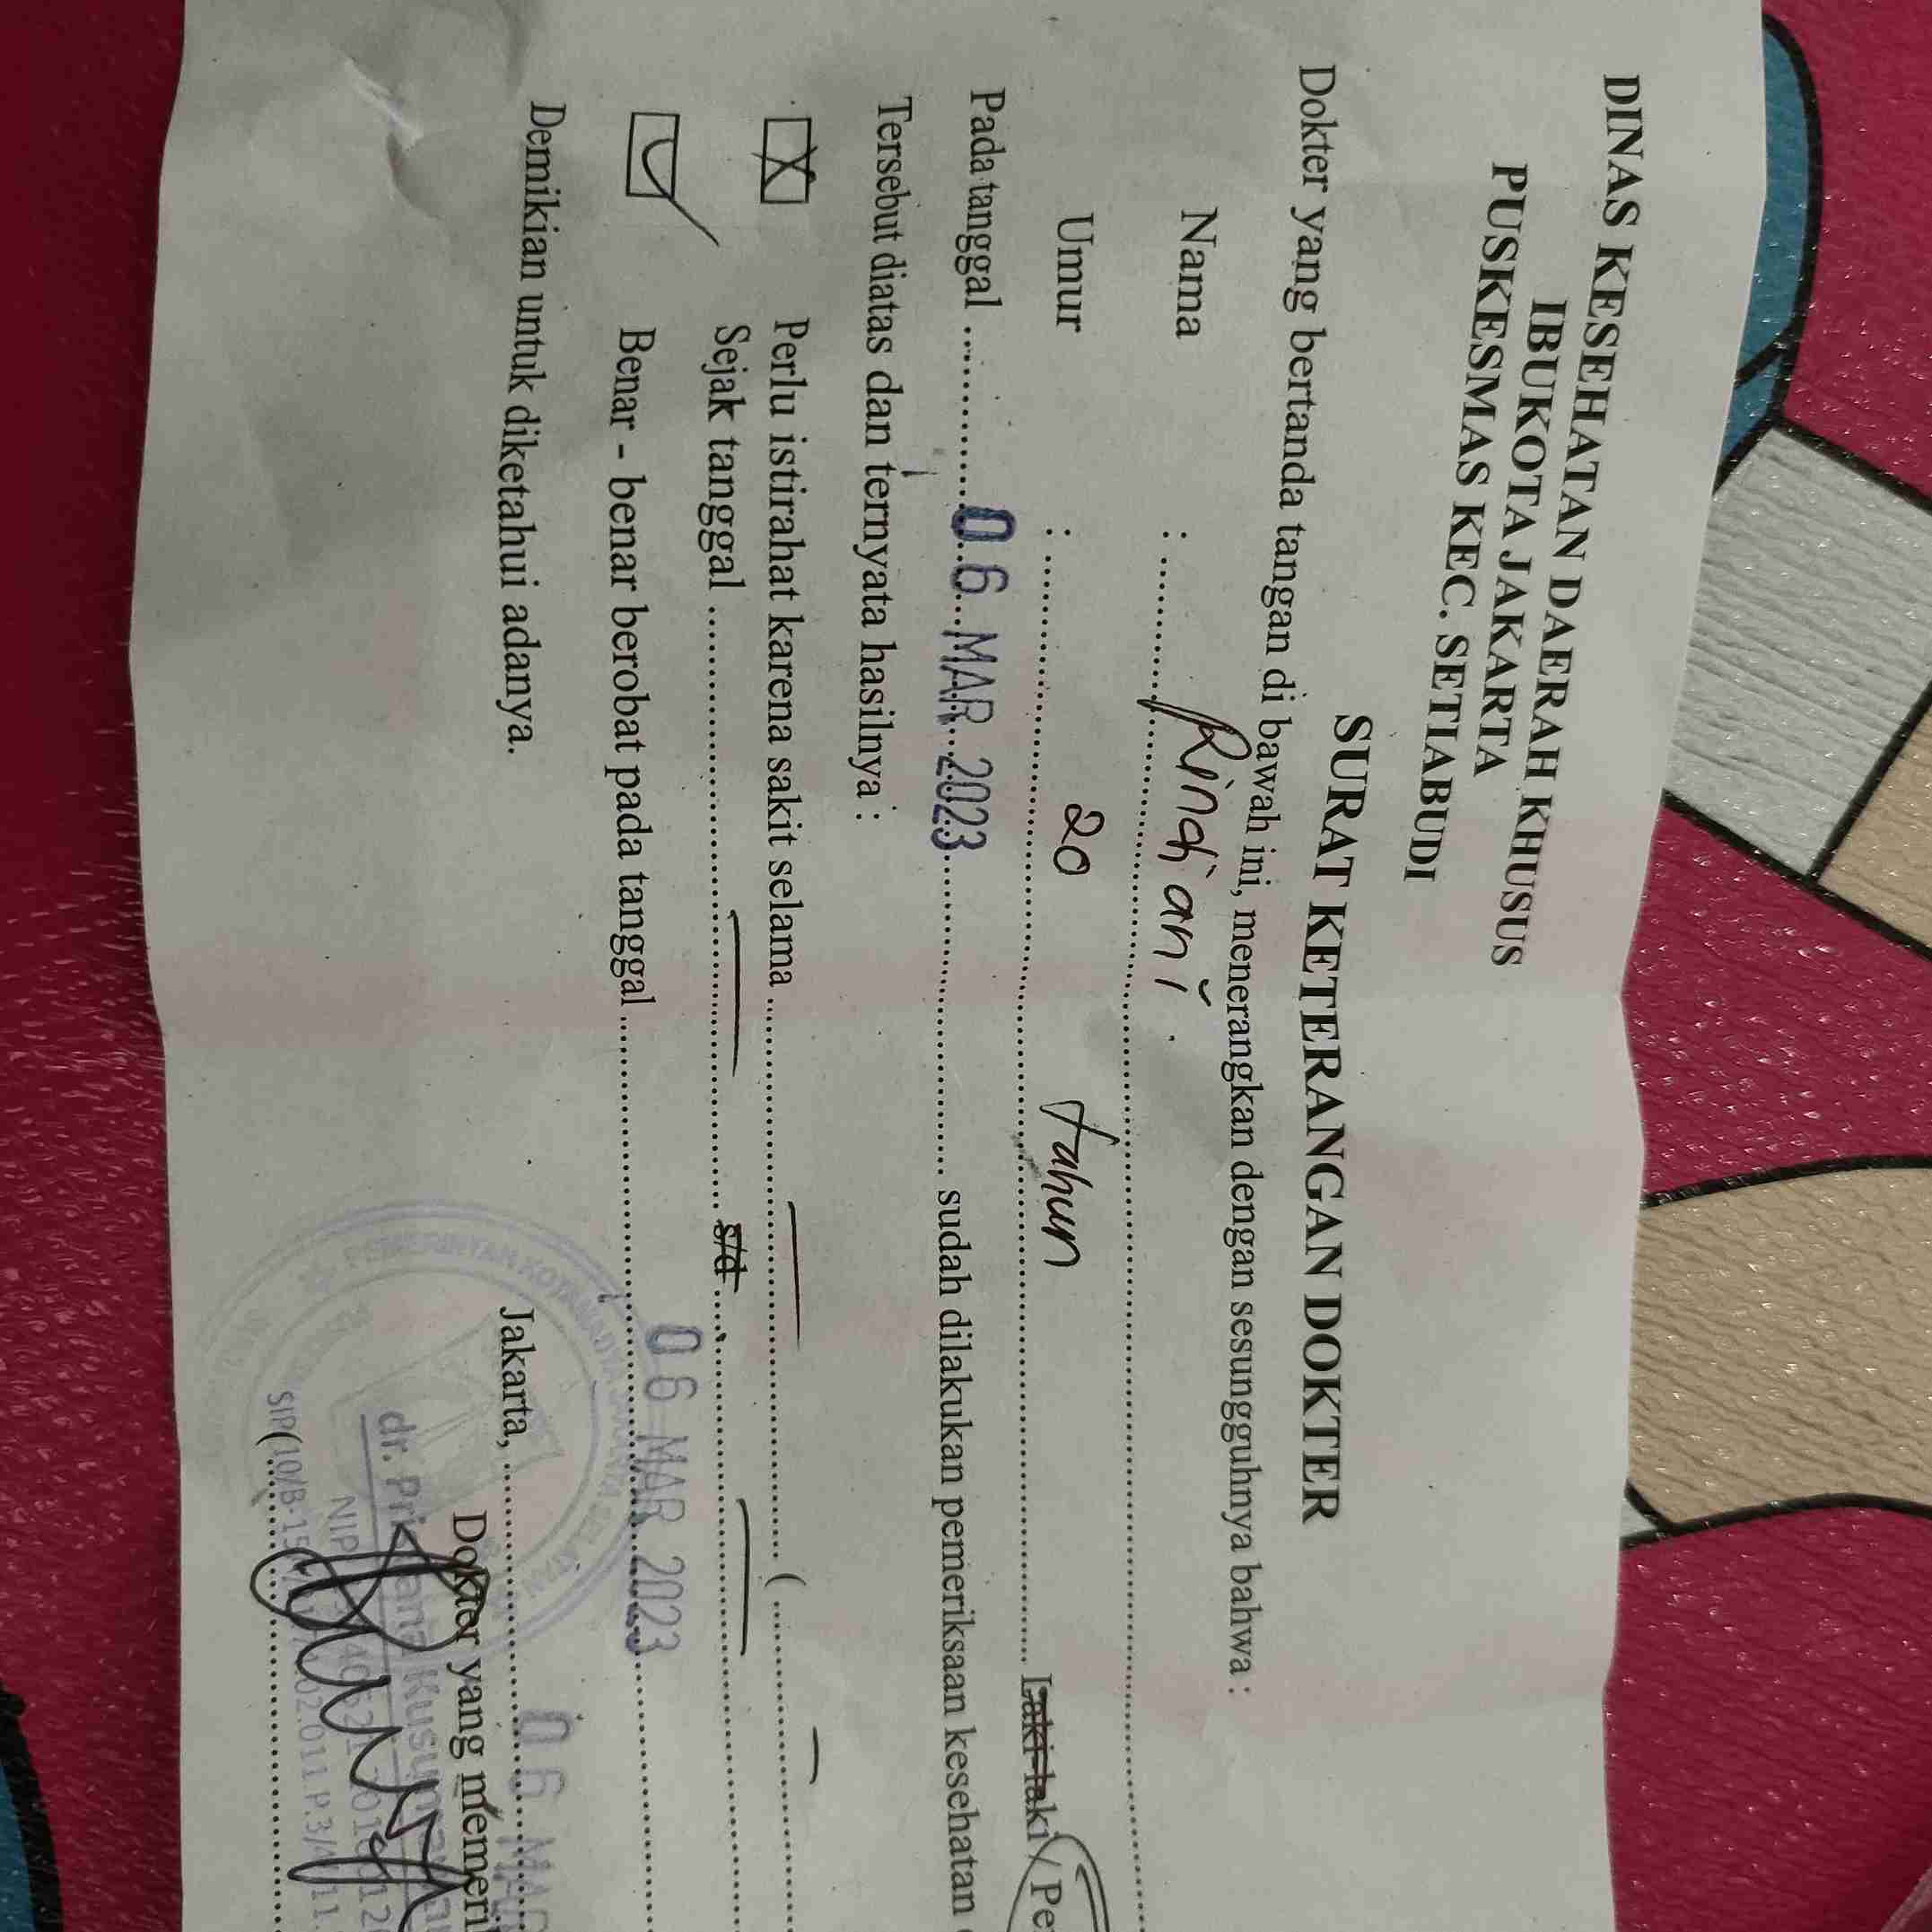 DINAS KESEHATAN DAERAH KHUSUS
IBUKOTA JAKARTA
PUSKESMAS KEC. SETIABUDI
SURAT KETERANGAN DOKTER
Dokter yang bertanda tangan di bawah ini, menerangkan dengan sesungguhnya bahwa :
Nama : Rindiani
Umur : 20 tahun Laki-laki /
Pada tanggal 06 MAR 2023 sudah dilakukan pemeriksaan kesehatan
Tersebut diatas dan ternyata hasilnya :
X Perlu istirahat karena sakit selama (
Sejak tanggal s/d
Benar - benar berobat pada tanggal 06 MAR 2023
Demikian untuk diketahui adanya.
Jakarta, 06 MAR
Dokter yang
PEMERINTAH KOTA
dr.
NIP